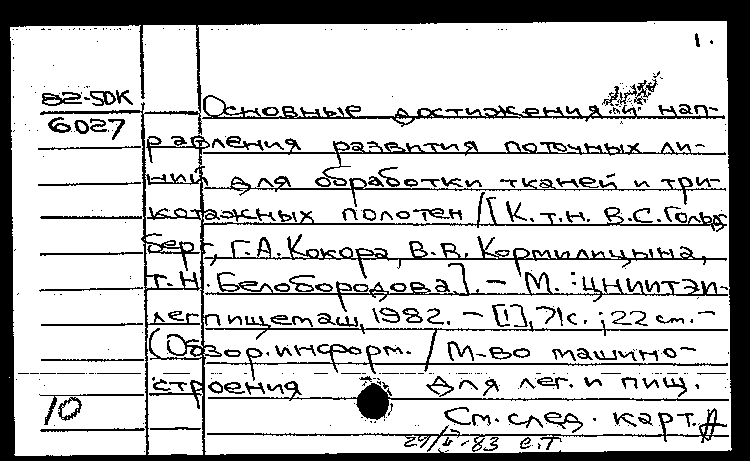 1.
82-5DK
6027
Основные достижения и нап-
равления развития поточных ли-
ний для обработки тканей и три-
котажных полотен / [К.т.н. В.С. Гольд
берг, Г.А. Кокора, В.В. Кормилицына,
Т.Н. Белобородова]. - М. : ЦНИИТЭИ-
легпищемаш, 1982. - [1], 71с. ; 22 см. -
(Обзор. информ. / М-во машино-
строения для лег. и пищ.
10
См. след. карт.
24/II-83 е.Т